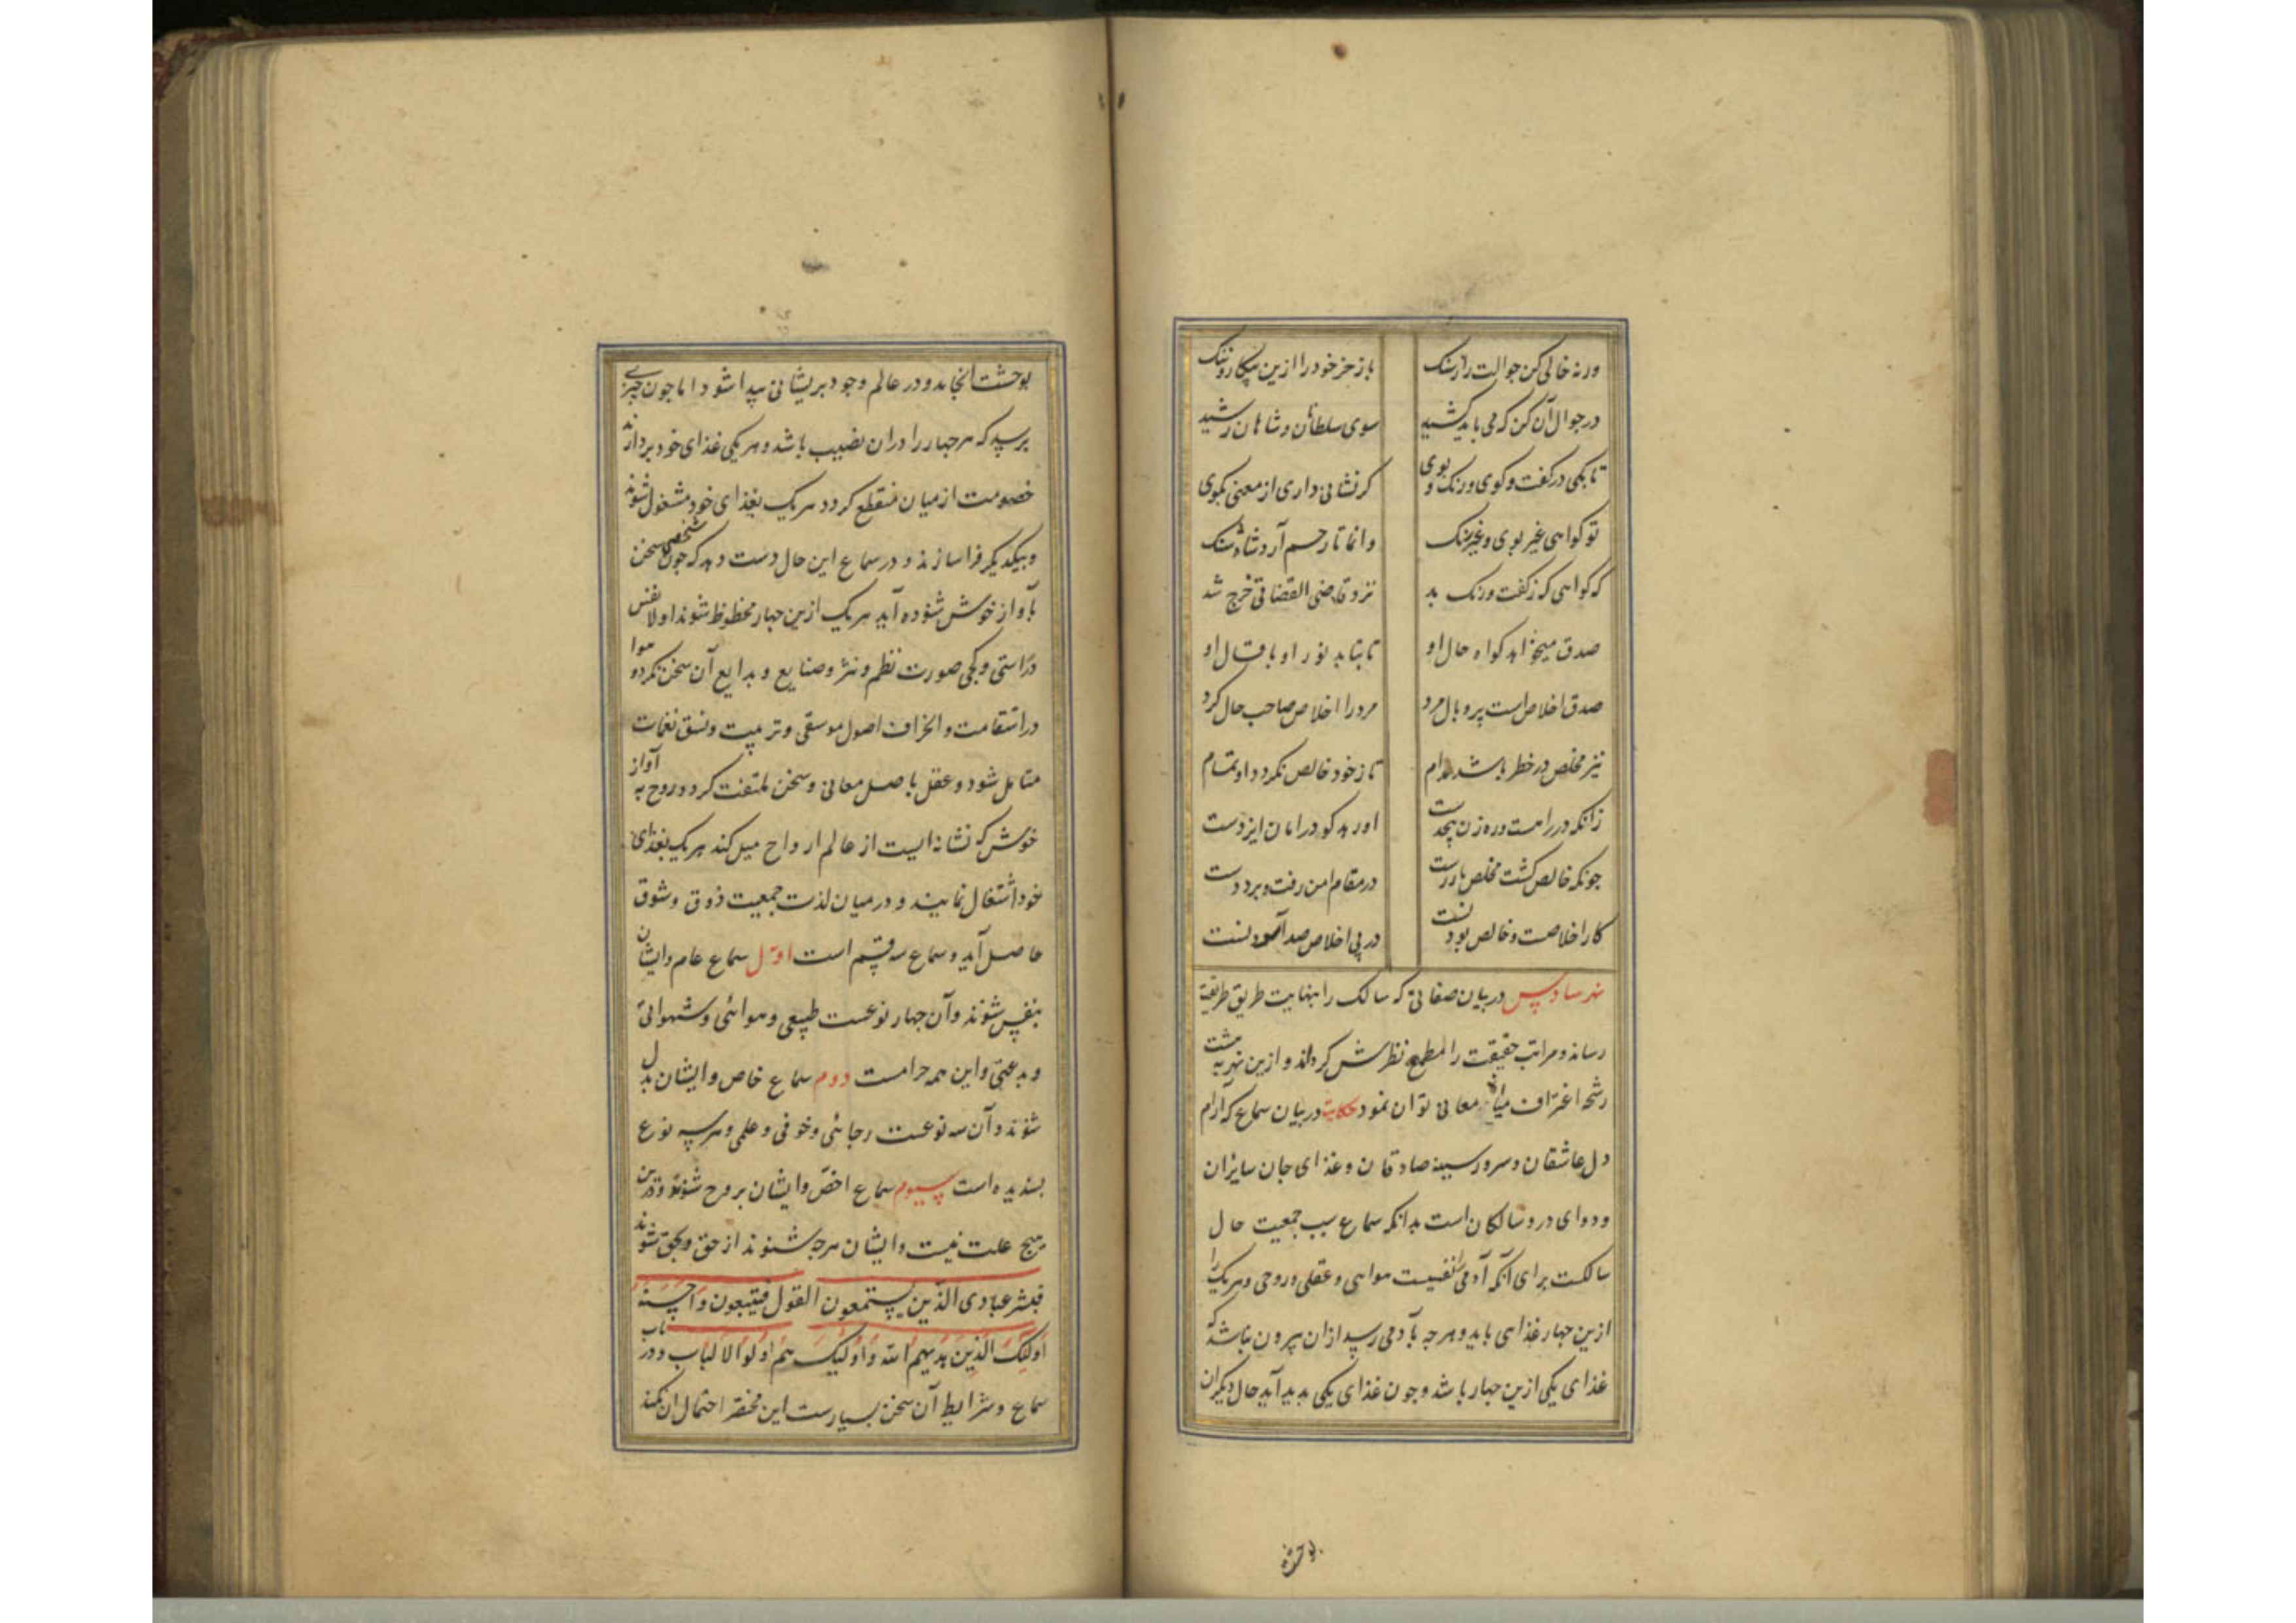 ورنه خالی کن جوالت را ز سنک باز خر خود را ازین پیکار و ننک
در جوال آن کن که می باید کشید سوی سلطانان و شاهان رشید
تا بکی در کفت و کوی و رنک و بوی کر نشانی داری از معنی بکوی
تو کواهی غیر بوی و غیر رنک وانما تا رحم آرد شاه شنک
که کواهی که ز کفت و رنک بد نزد قاضی القضاتی خرج شد
صدق میخواهد کواه حال او تا بتابد نور او باقال او
صدق اخلاص است پر و بال مرد مرد را اخلاص صاحب حال کرد
نیز مخلص در خطر باشد مدام تا ز خود خالص نکردد او تمام
زانکه در راهست و ره زن بیحدست او رهد کو در امان ایزدست
چونکه خالص کشت مخلص باز رست در مقام امن رفت و برد دست
کار اخلاصست و خالص بودنست در پی اخلاص صد آسودنست
نهر سادس در بیان صفاتی که سالک را بنهایت طریق طریقت
رساند و مراتب حقیقت را مطمح نظرش کرداند و ازین نهر به هشت
رشحه اغتراف میاه معانی توان نمود حکایت در بیان سماع که آرام
دل عاشقان و سرور سینه صادقان و غذای جان سایران
و دوای درد سالکان است بدانکه سماع سبب جمعیت حال
سالکست برای آنکه آدمی را نفسیست هوایی و عقلی و روحی و هریک را
ازین جهار غذاهی باید و هرجه بآدمی رسد ازان بیرون نباشد که
غذای یکی ازین جهار باشد و جون غذای یکی بدید آید حال دیکران
بوحشت
بوحشت انجامد و در عالم وجود بریشانی پیدا شود اما جون چیزی
برسد که هر جهار را دران نصیب باشد و هر یکی غذای خود بردارند
خصومت از میان منقطع کردد هر یک بغذای خود مشغول شوند
و بیکدیکر فرا سازند و در سماع این حال دست دهد که جون شخصی سخن
بآواز خوش شنوده آید هر یک ازین جهار محظوظ شوند اولا نفس
در راستی و کجی صورت نظم و نثر و صنایع و بدایع آن سخن نکرد و هوا
در استقامت و انحراف اصول موسقی و ترتیب و نسق نغمات
متامل شود و عقل باصل معانی و سخن ملتفت کردد و روح به آواز
خوش که نشانه ایست از عالم ارواح میل کند هر یک بغذای
خود اشتغال نمایند و در میان لذت جمعیت ذوق و شوق
حاصل آید و سماع سه قسم است اول سماع عام و ایشان
بنفس شنوند و آن جهار نوعست طبیعی و هوائی و شهوانی
و بدعتی و این همه حرامست دوم سماع خاص و ایشان بدل
شنوند و آن سه نوعست رجائی و خوفی و علمی و هر سه نوع
بسندیده است سیوم سماع اخص و ایشان بروح شنوند و درین
هیج علت نیست و ایشان هرجه شنوند از حق و بحق شنوند
فبشر عبادی الذین یستمعون القول فیتبعون احسنه
اولئک الذین هدیهم الله و اولئک هم اولوا الالباب و در باب
سماع و شرایط آن سخن بسیارست این مختصر احتمال ان نکند